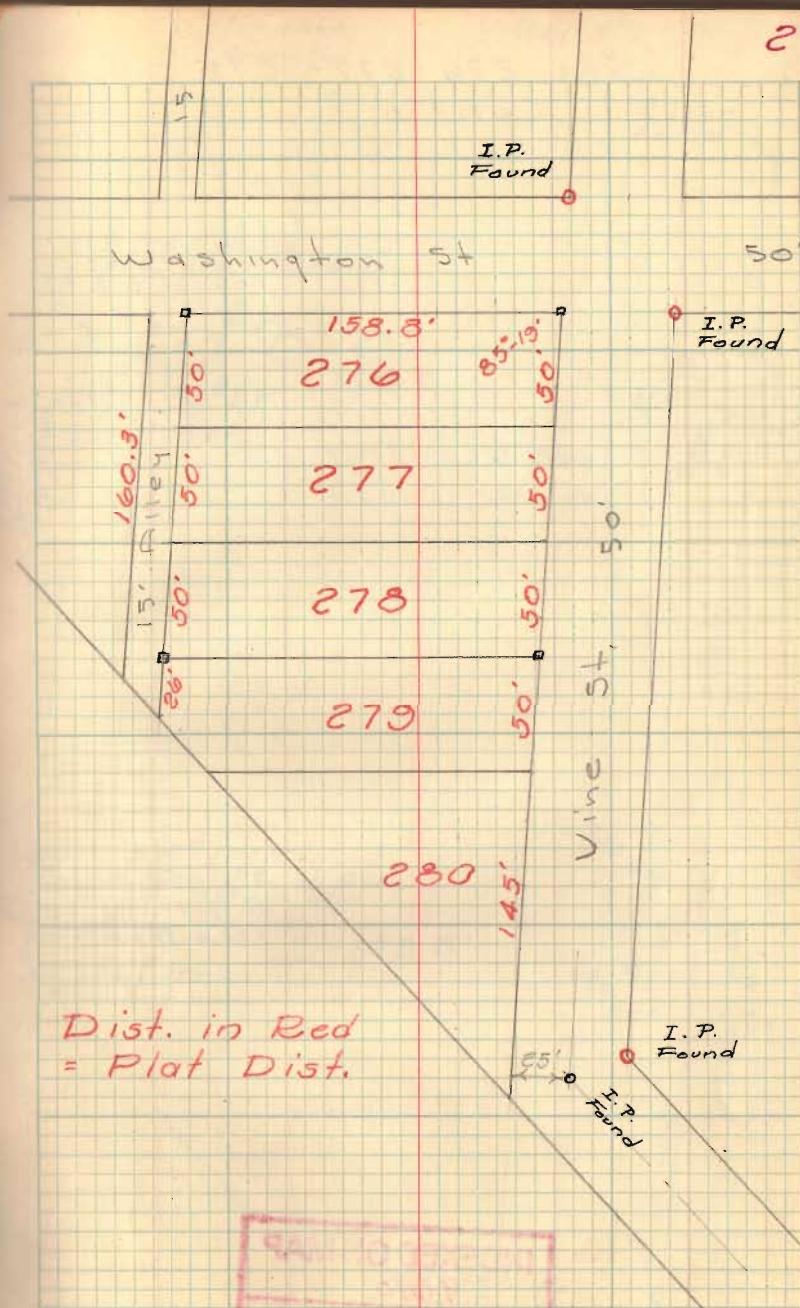 2
15
I.P.
Found
Washington St
50'
158.8'
I.P.
Found
85°-19'
50'
276
50'
160.3'
15' Alley
50'
277
50'
50'
278
50'
Vine St. 50'
26'
279
50'
280
145'
Dist. in Red
= Plat Dist.
I.P.
Found
25'
I.P.
Found